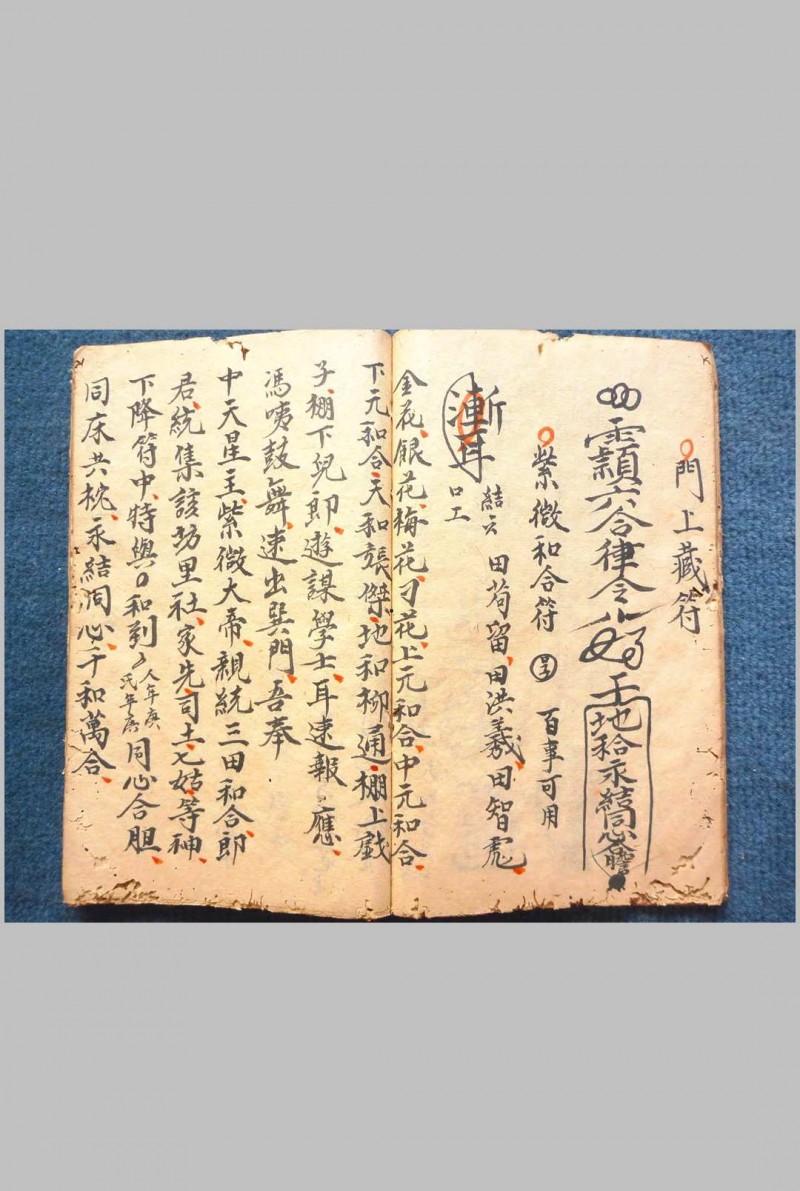 門上藏符
六合律令
紫微和合符 百事可用
結云 田苟留田洪義田智彪
口工
金花銀花梅花刁花上元和合中元和合
下元和合天和張傑地和柳通棚上戲
子棚下兒郎遊謀學士耳速報〻應
馮咦鼓舞速出巽門吾奉
中天星主紫微大帝親統三田和合郎
君統集該坊里社家先司土七姑等神
下降符中特與 和到 人年庚 氏年庚 同心合胆
同床共枕永結同心千和萬合